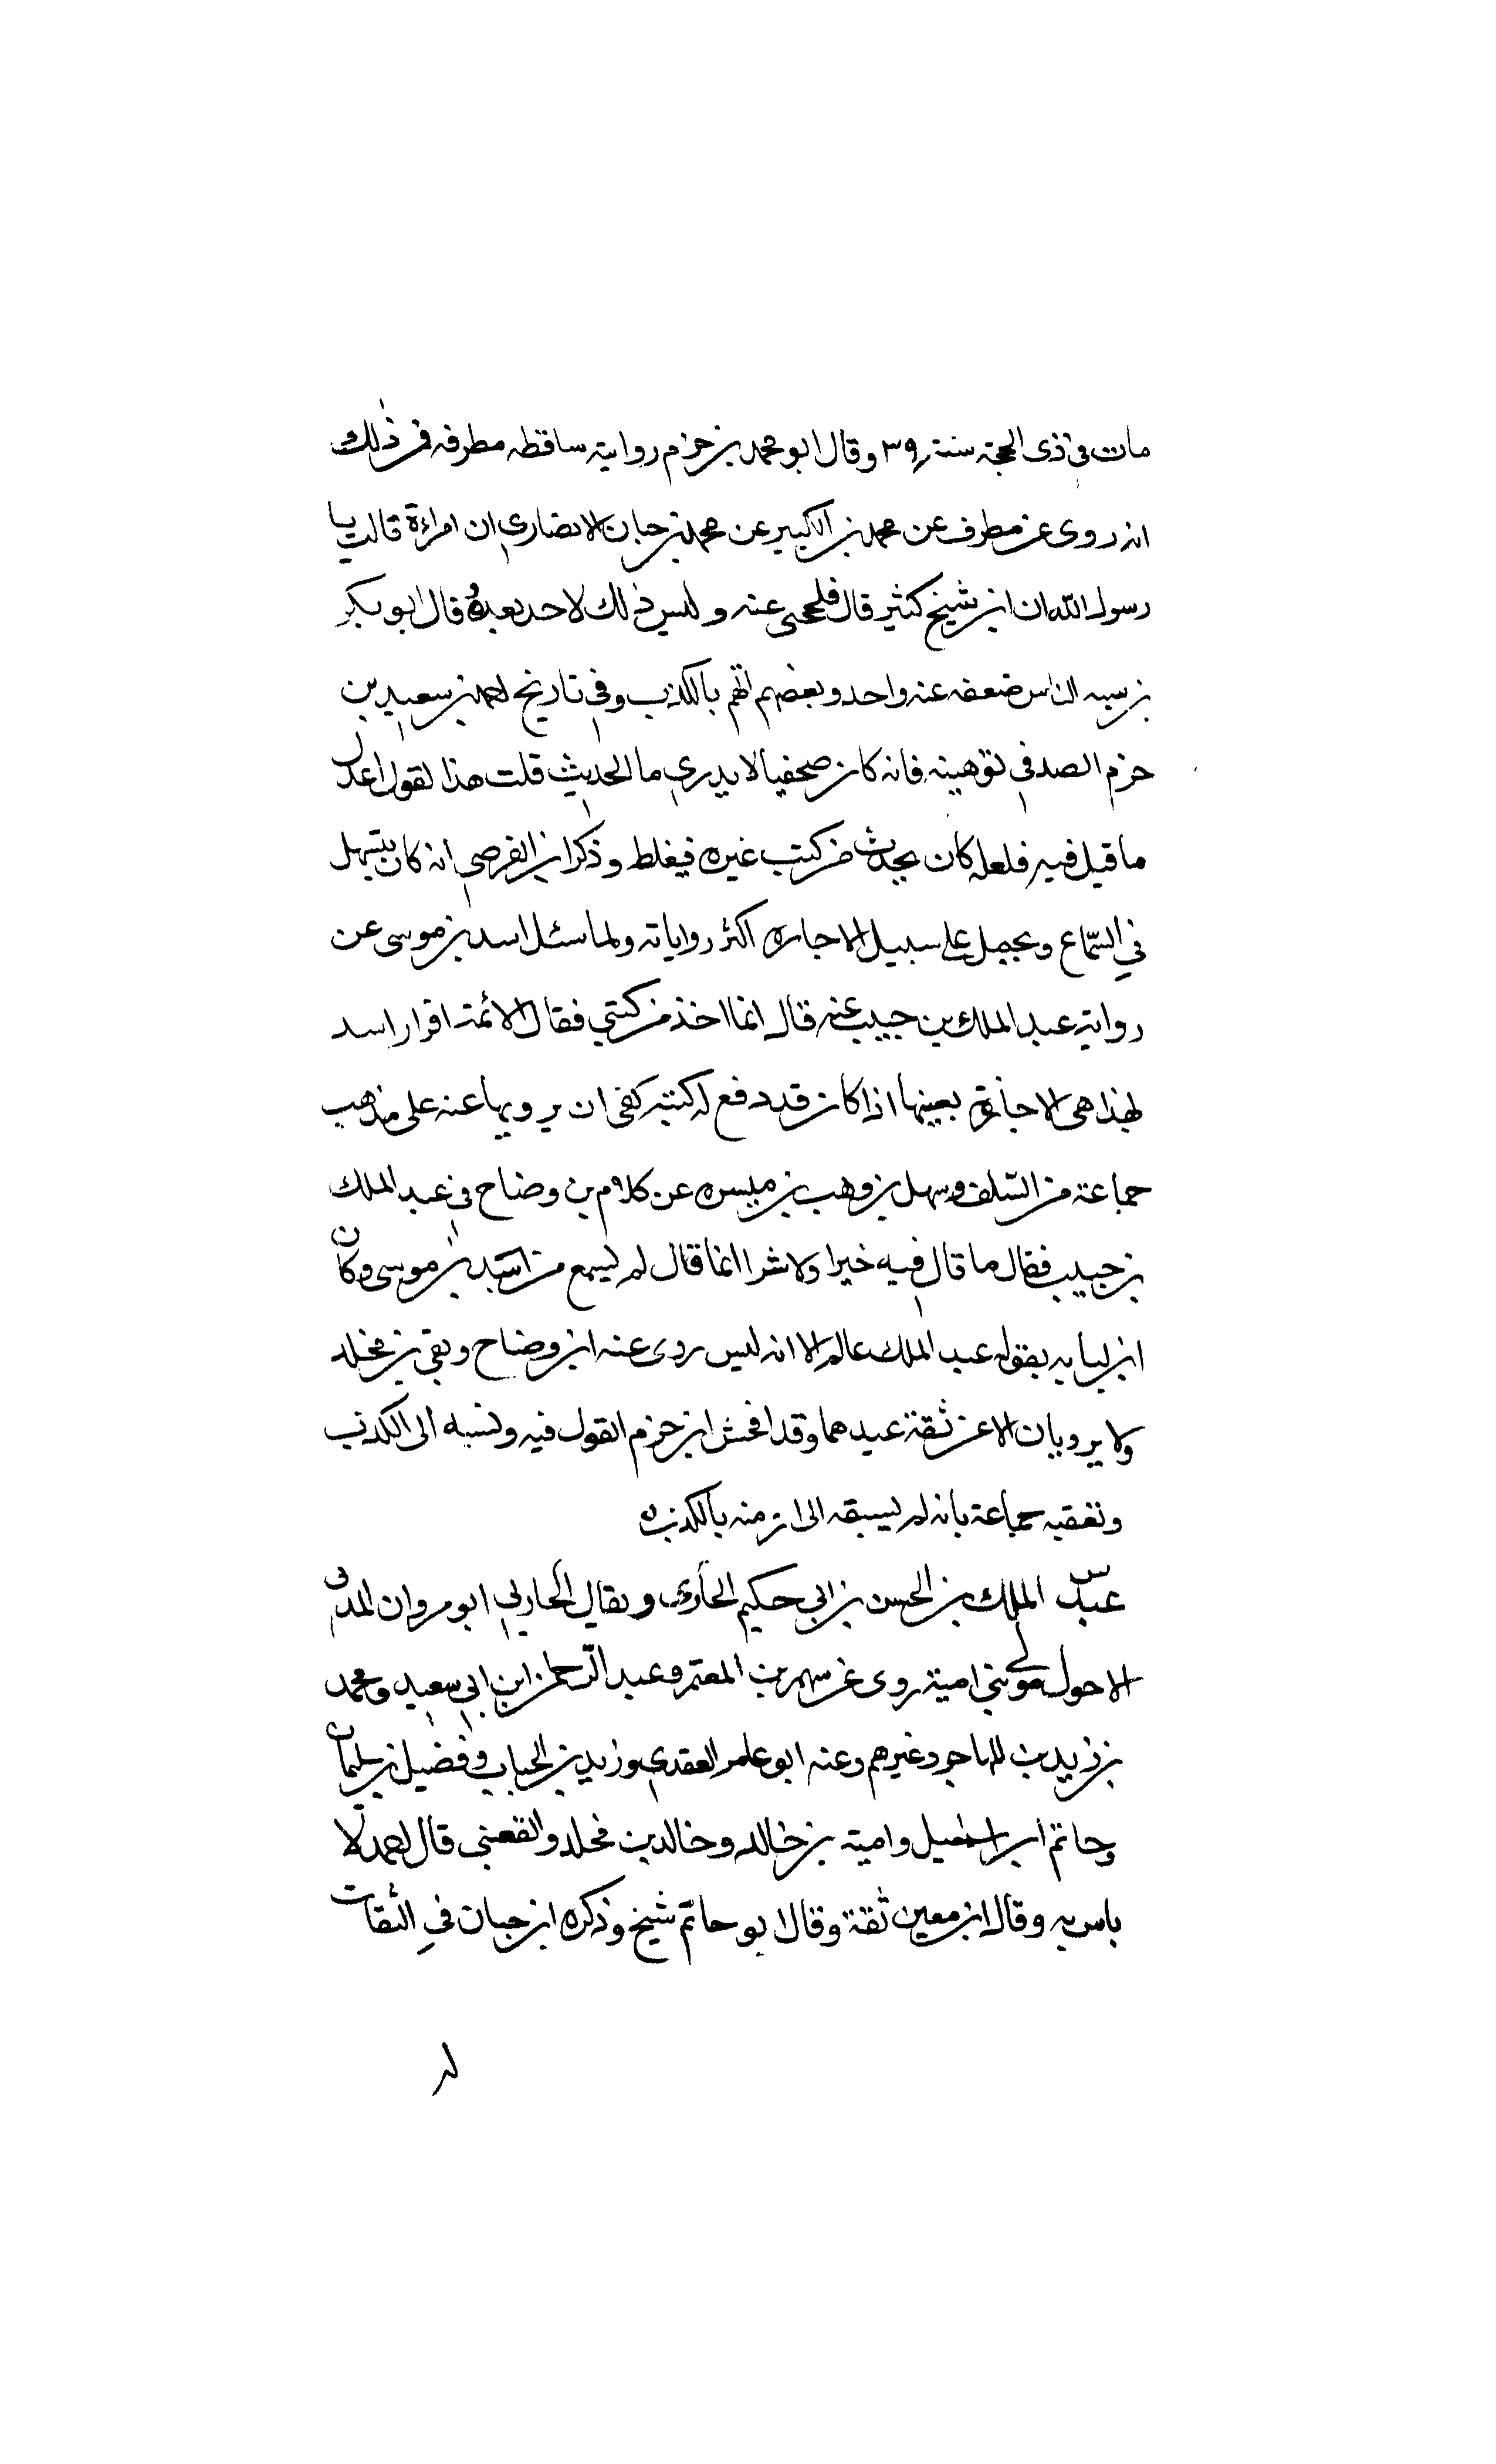 مات فى ذى الحجة سنة ٣٩ وقال ابو محمد بن حزم روايته ساقطه مطرفه فمن ذلك
انه روى عن مطرف عن محمد بن الكبير عن محمد بن حبان الانصارى ان امراءة قالت يا
رسول الله ان ابى شيخ كثير قال فلحجى عنه وليس ذلك لاحد بعده وقال ابو بكر
بن سيه الناس ضعفه عنه واحد وبعضهم اتهم بالكذب وفى تاريخ احمد بن سعيد بن
حزم الصدفى توهينه فانه كان صحفيا لا يدرى ما الحديث قلت هذا القول اعدل
ما قيل فيه فلعله كان يحدث من كتب غيره فيغلط وذكر ابن الفرضى انه كان يتسهل
فى السماع ويحمل على سبيل الاجازه اكثر رواياته ولما سئل اسد بن موسى عن
رواية عبد الملك بن حبيب عنه قال انما اخذ من كتبى فقال الائمة اقرار اسد
بهذا هى الاجازة بعينها اذا كان قد دفع له كتبه كفى ان يرويها عنه على مذهب
جماعة من السلف وسهل بن وهب بن ميسره عن كلام بن وضاح فى عبد الملك
بن حبيب فقال ما قال فيه خيرا ولا شرا انما قال لم يسمع من اسد بن موسى وكان
ابن لبابه يقول عبد الملك عالم الا انه ليس روى عنه ابن وضاح وبقى بن مخلد
ولا يرويان الا عن ثقة عندهما وقد افحش ابن حزم القول فيه ونسبه الى الكذب
وتعقبه جماعة بانه لم يسبقه الى ان منه بالكذب
عبد الملك بن الحسن بن ابى حكيم الحارى ويقال الحاربى ابو مروان المدنى
الاحول مولى بنى امية روى عن سهم بن المعتمر وعبد الرحمن ابن ابى سعيد ومحمد
بن زيد بن المهاجر وغيرهم وعنه ابو عامر العقدى وزيد بن الحباب وفضيل بن سليمان
وحاتم ابن اسمعيل وامية بن خالد وخالد بن مخلد والقعنبى قال احمد لا
باس به وقال ابن معين ثقة وقال ابو حاتم شيخ وذكره ابن حبان فى الثقات
له